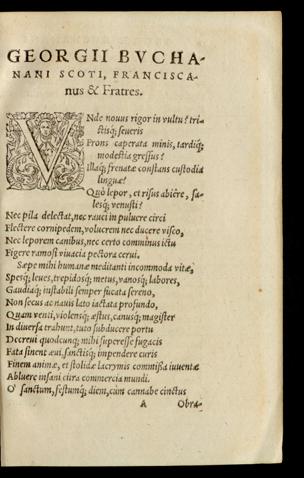 GEORGII BVCHA-
NANI SCOTI, FRANCISCA-
nus & Fratres.
VNde nouus rigor in vultu? tri-
ctisq; seueris
Frons caperata minis, tardiq;
modestia gressus?
Illaq; frenatæ constans custodia
linguæ?
Quò lepor, et risus abiêre, sa-
lesq; venusti?
Nec pila delectat, nec rauci in puluere circi
Flectere cornipedem, volucrem nec ducere visco,
Nec leporem canibus, nec certo comminus ictu
Figere ramosi viuacia pectora cerui.
Sæpe mihi humanæ meditanti incommoda vitæ,
Spesq; leues, trepidosq; metus, vanosq; labores,
Gaudiaq; instabili semper fucata sereno,
Non secus ac nauis lato iactata profundo,
Quam venti, violensq; æstus, canusq; magister
In diuersa trahunt, tuto subducere portu
Decreui quodcunq; mihi superesse fugacis
Fata sinent æui, sanctisq; impendere curis
Finem animæ, et stolidæ lacrymis commissa iuuentæ
Abluere insani citra commercia mundi.
O' sanctum, festumq; diem, cùm cannabe cinctus
A Obra-